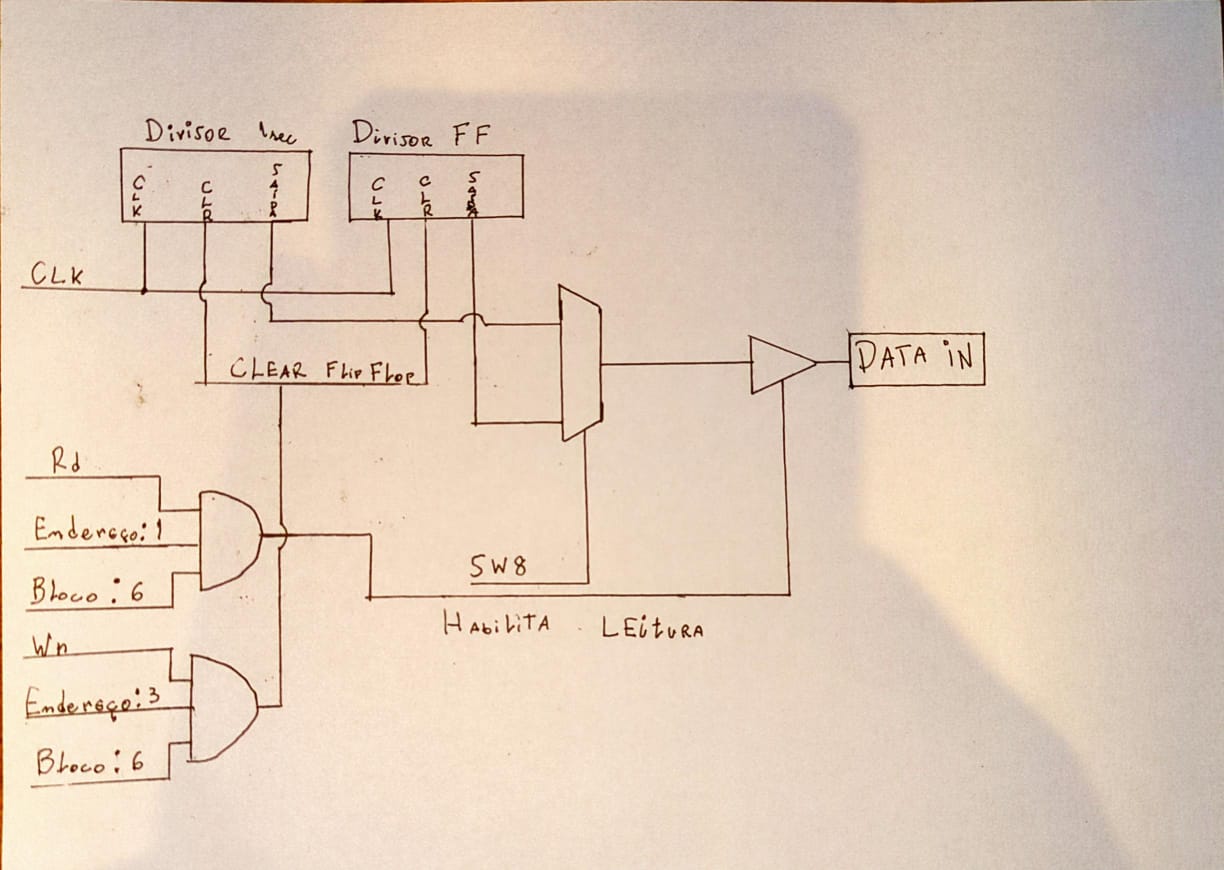 Divisor 1sec
Divisor FF
CLK
CLR
SAIDA
CLK
CLR
SAIDA
CLK
CLEAR FlipFlop
DATA iN
Rd
Endereço: 1
Bloco: 6
SW8
HAbiLiTA LEitURA
Wr
Endereço: 3
Bloco: 6